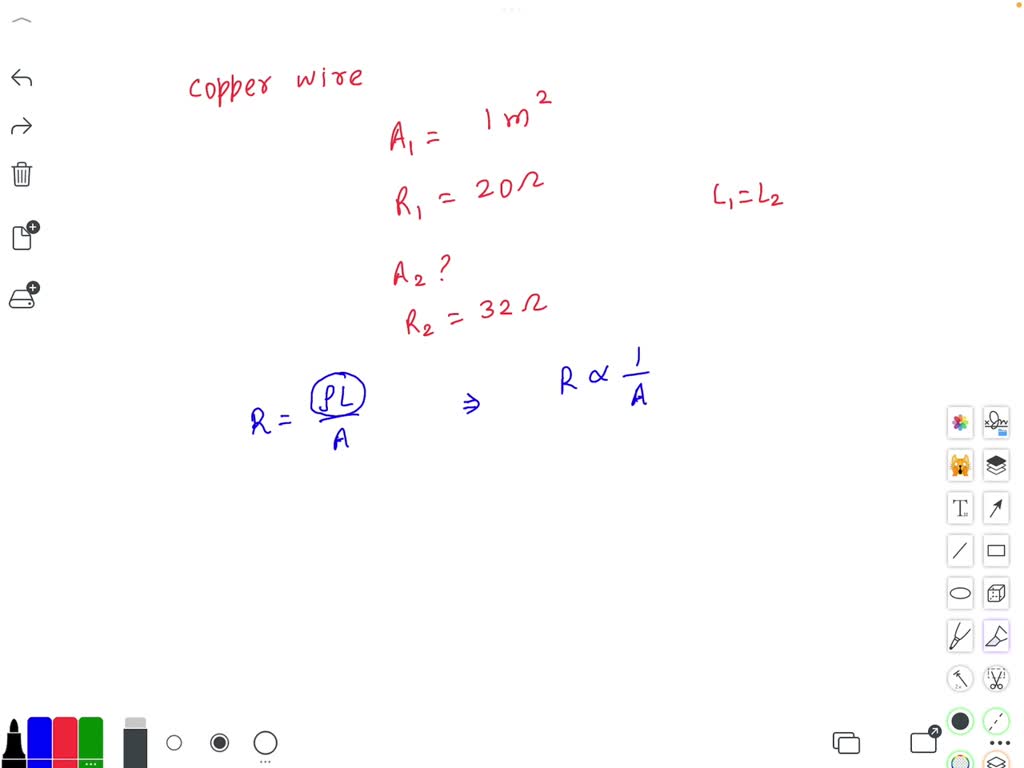 copper wire
A₁ = 1 m²
R₁ = 20Ω
L₁ = L₂
A₂ ?
R₂ = 32Ω
R = ρL/A ⇒ R ∝ 1/A
T